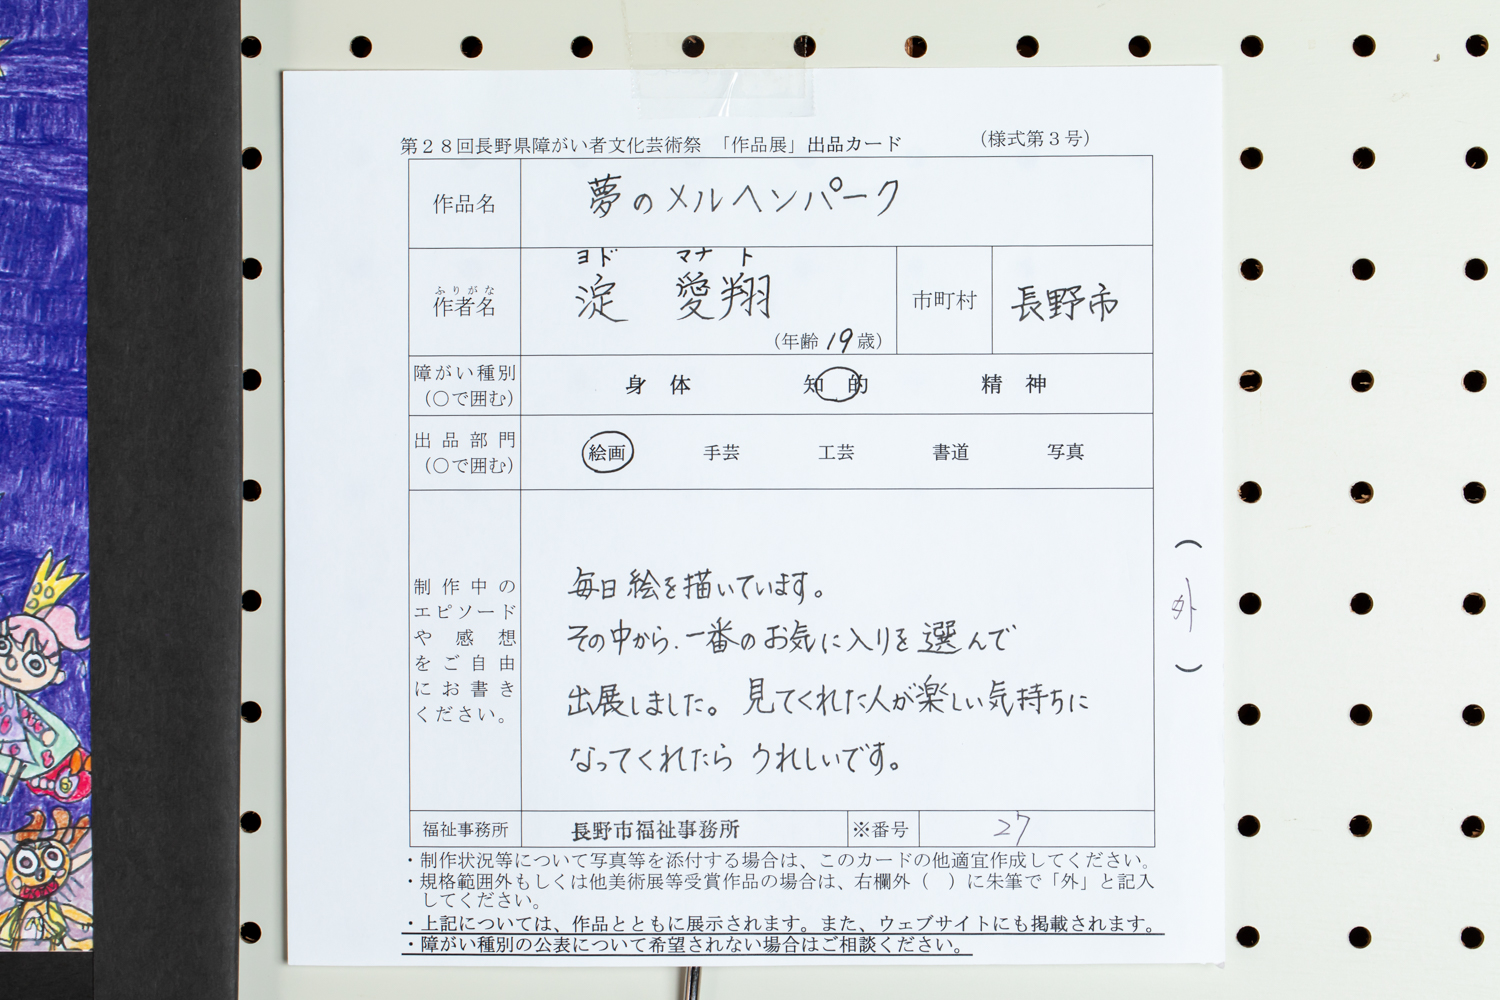 第28回長野県障がい者文化芸術祭 「作品展」出品カード (様式第3号)
作品名 夢のメルヘンパーク
ヨド マナト
ふりがな
作者名 淀 愛翔 市町村 長野市
(年齢 19 歳)
障がい種別 身 体 知 的 精 神
(○で囲む)
出品部門 絵画 手芸 工芸 書道 写真
(○で囲む)
制作中の
エピソード
や感想
をご自由
にお書き
ください。
毎日絵を描いています。
その中から、一番のお気に入りを選んで
出展しました。見てくれた人が楽しい気持ちに
なってくれたら うれしいです。
(外)
福祉事務所 長野市福祉事務所 ※番号 27
・制作状況等について写真等を添付する場合は、このカードの他適宜作成してください。
・規格範囲外もしくは他美術展等受賞作品の場合は、右欄外( )に朱筆で「外」と記入
してください。
・上記については、作品とともに展示されます。また、ウェブサイトにも掲載されます。
・障がい種別の公表について希望されない場合はご相談ください。